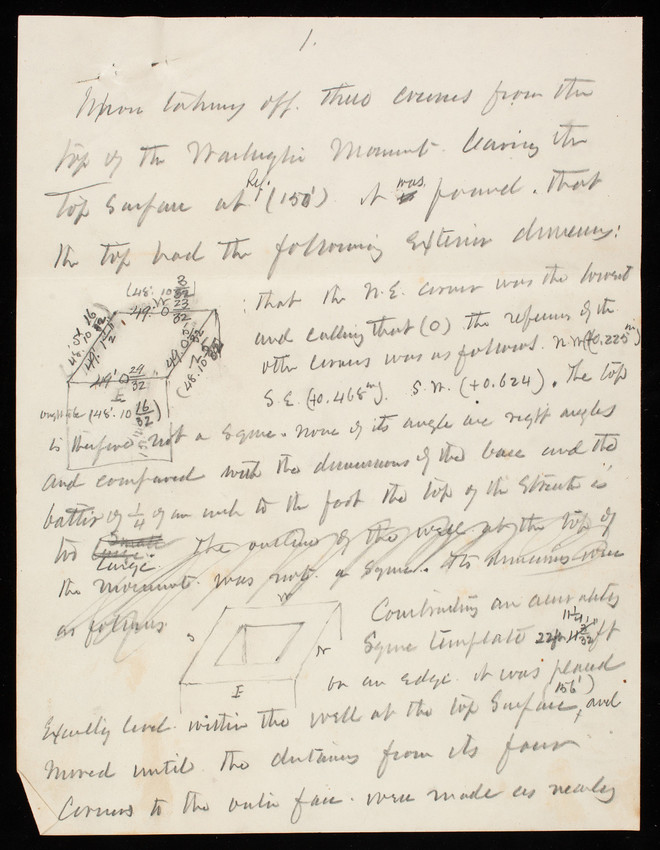 1.
Upon taking off three courses from the
top of the Washington Monument. leaving the
top surface at Ref: (150') it was found. that
the top had the following exterior dimensions:
(48'. 10 3/32)
W
49' 0 23/32
49' 0 29/32
E
(48'. 10 16/32)
: that the N.E. corner was the lowest
and calling that (0) the references of the
other corners was as follows. N.W. (+0.225 in)
S.E. (+0.468 in). S.W. (+0.624). The top
is therefore not a square. none of its angles are right angles
and compared with the dimensions of the base and the
batter of 1/4 of an inch to the foot the top of the structure is
too small large.
large. The outline of the well at the top of
the monument. was not a square. Its dimensions were
as follows
W
S
N
E
Constructing an accurately
square template 22 ft
on an edge. it was placed
Exactly level. within the well at the top surface, (156') and
moved until the distances from its four
corners to the outer face. were made as nearly